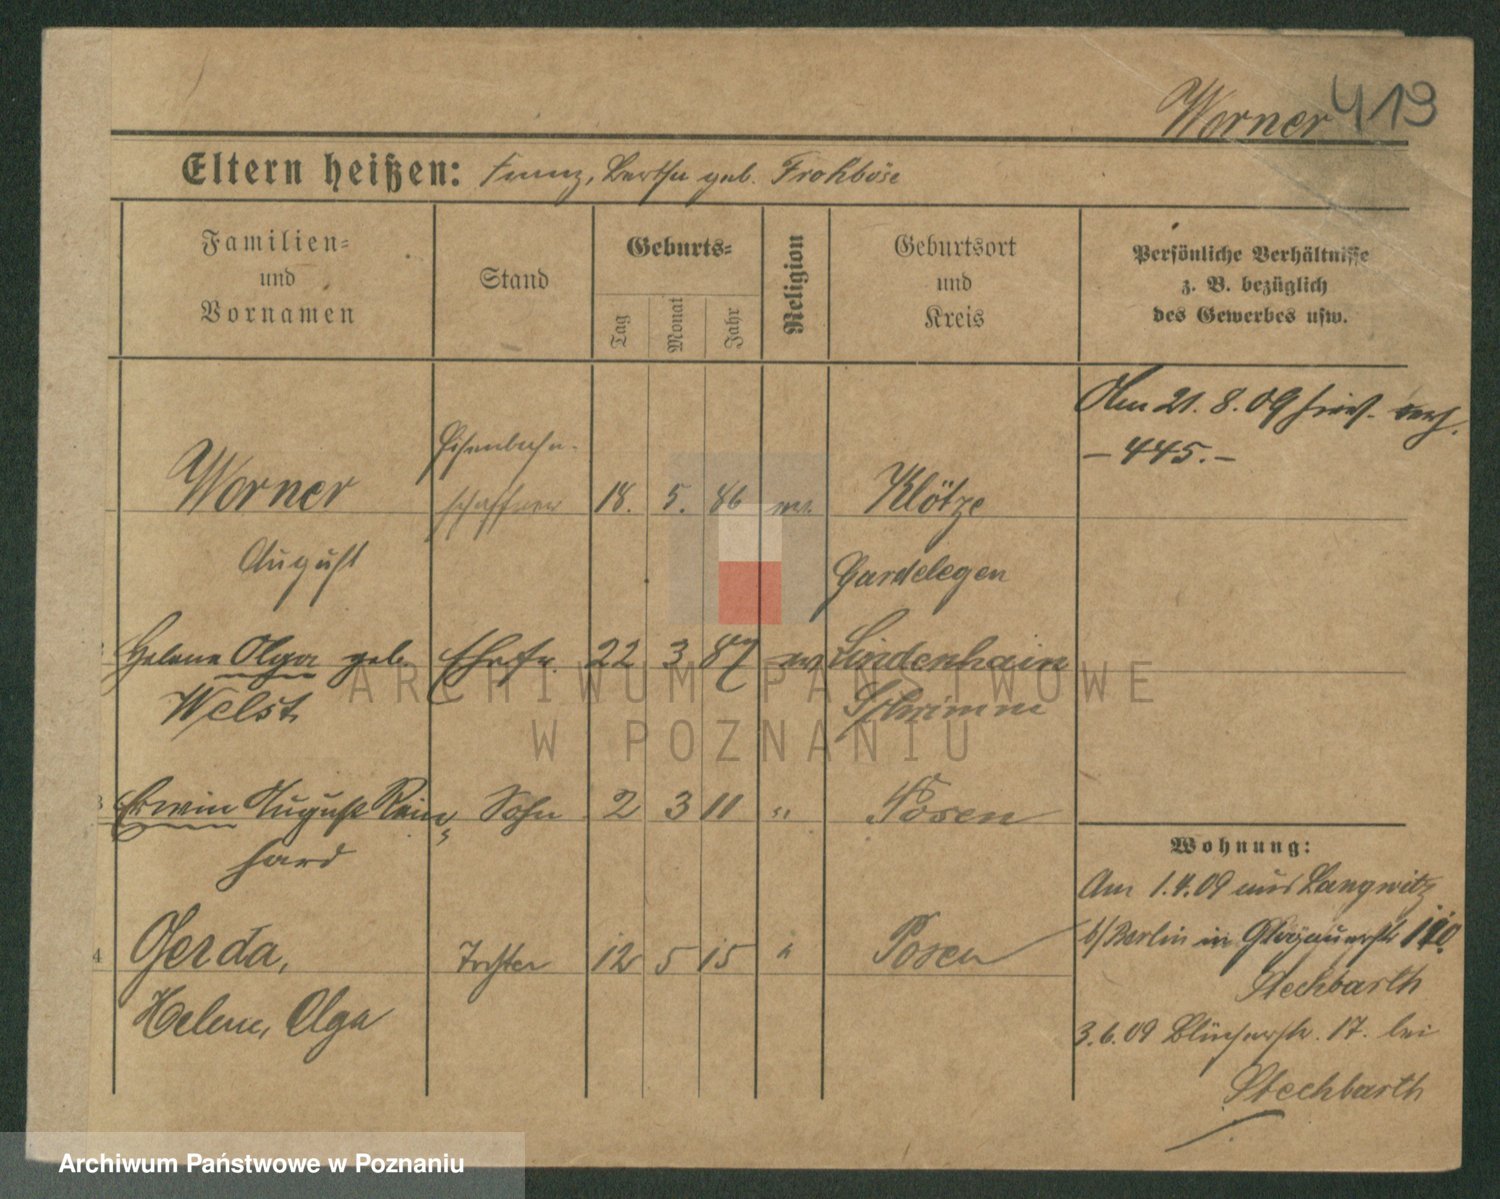 Worner 419
Eltern heißen: Franz, Bertha geb. Frohböse
Familien-
und
Vornamen
Stand
Geburts-
Tag
Monat
Jahr
Religion
Geburtsort
und
Kreis
Persönliche Verhältnisse
z. B. bezüglich
des Gewerbes usw.
Am 21. 8. 09 verh.
- 445. -
Worner
Eisenbahn-
schaffner
18. 5. 86
Klötze
August
Gardelegen
Helene Olga geb.
Ehefr.
22 3 87
ev
Lindenhain
Welst
Schrimm
3 Erwin August Rein-
Sohn
2 3 11 "
Posen
hard
Wohnung:
Am 1.4.09 aus Langwitz
b/Berlin in Glogauerstr 110
4 Gerda,
Tochter
12 5 15 "
Posen
Stechbarth
Helene, Olga
3.6.09 Blücherstr. 17. bei
Stechbarth
ARCHIWUM PAŃSTWOWE
W POZNANIU
Archiwum Państwowe w Poznaniu